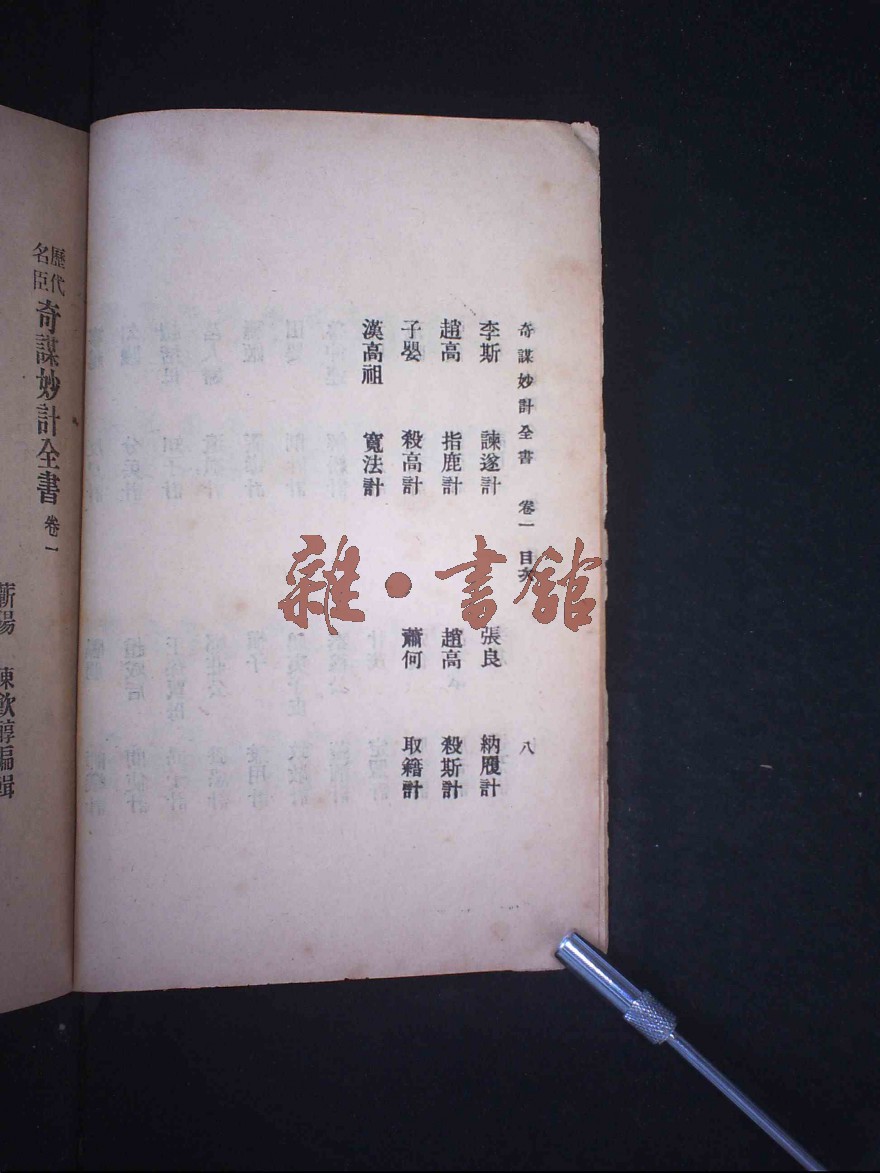 奇謀妙計全書 卷一 目次 八
李斯 諫逐計 張良 納履計
趙高 指鹿計 趙高 殺斯計
子嬰 殺高計 蕭何 取籍計
漢高祖 寬法計
雜·書館
歷代名臣奇謀妙計全書 卷一